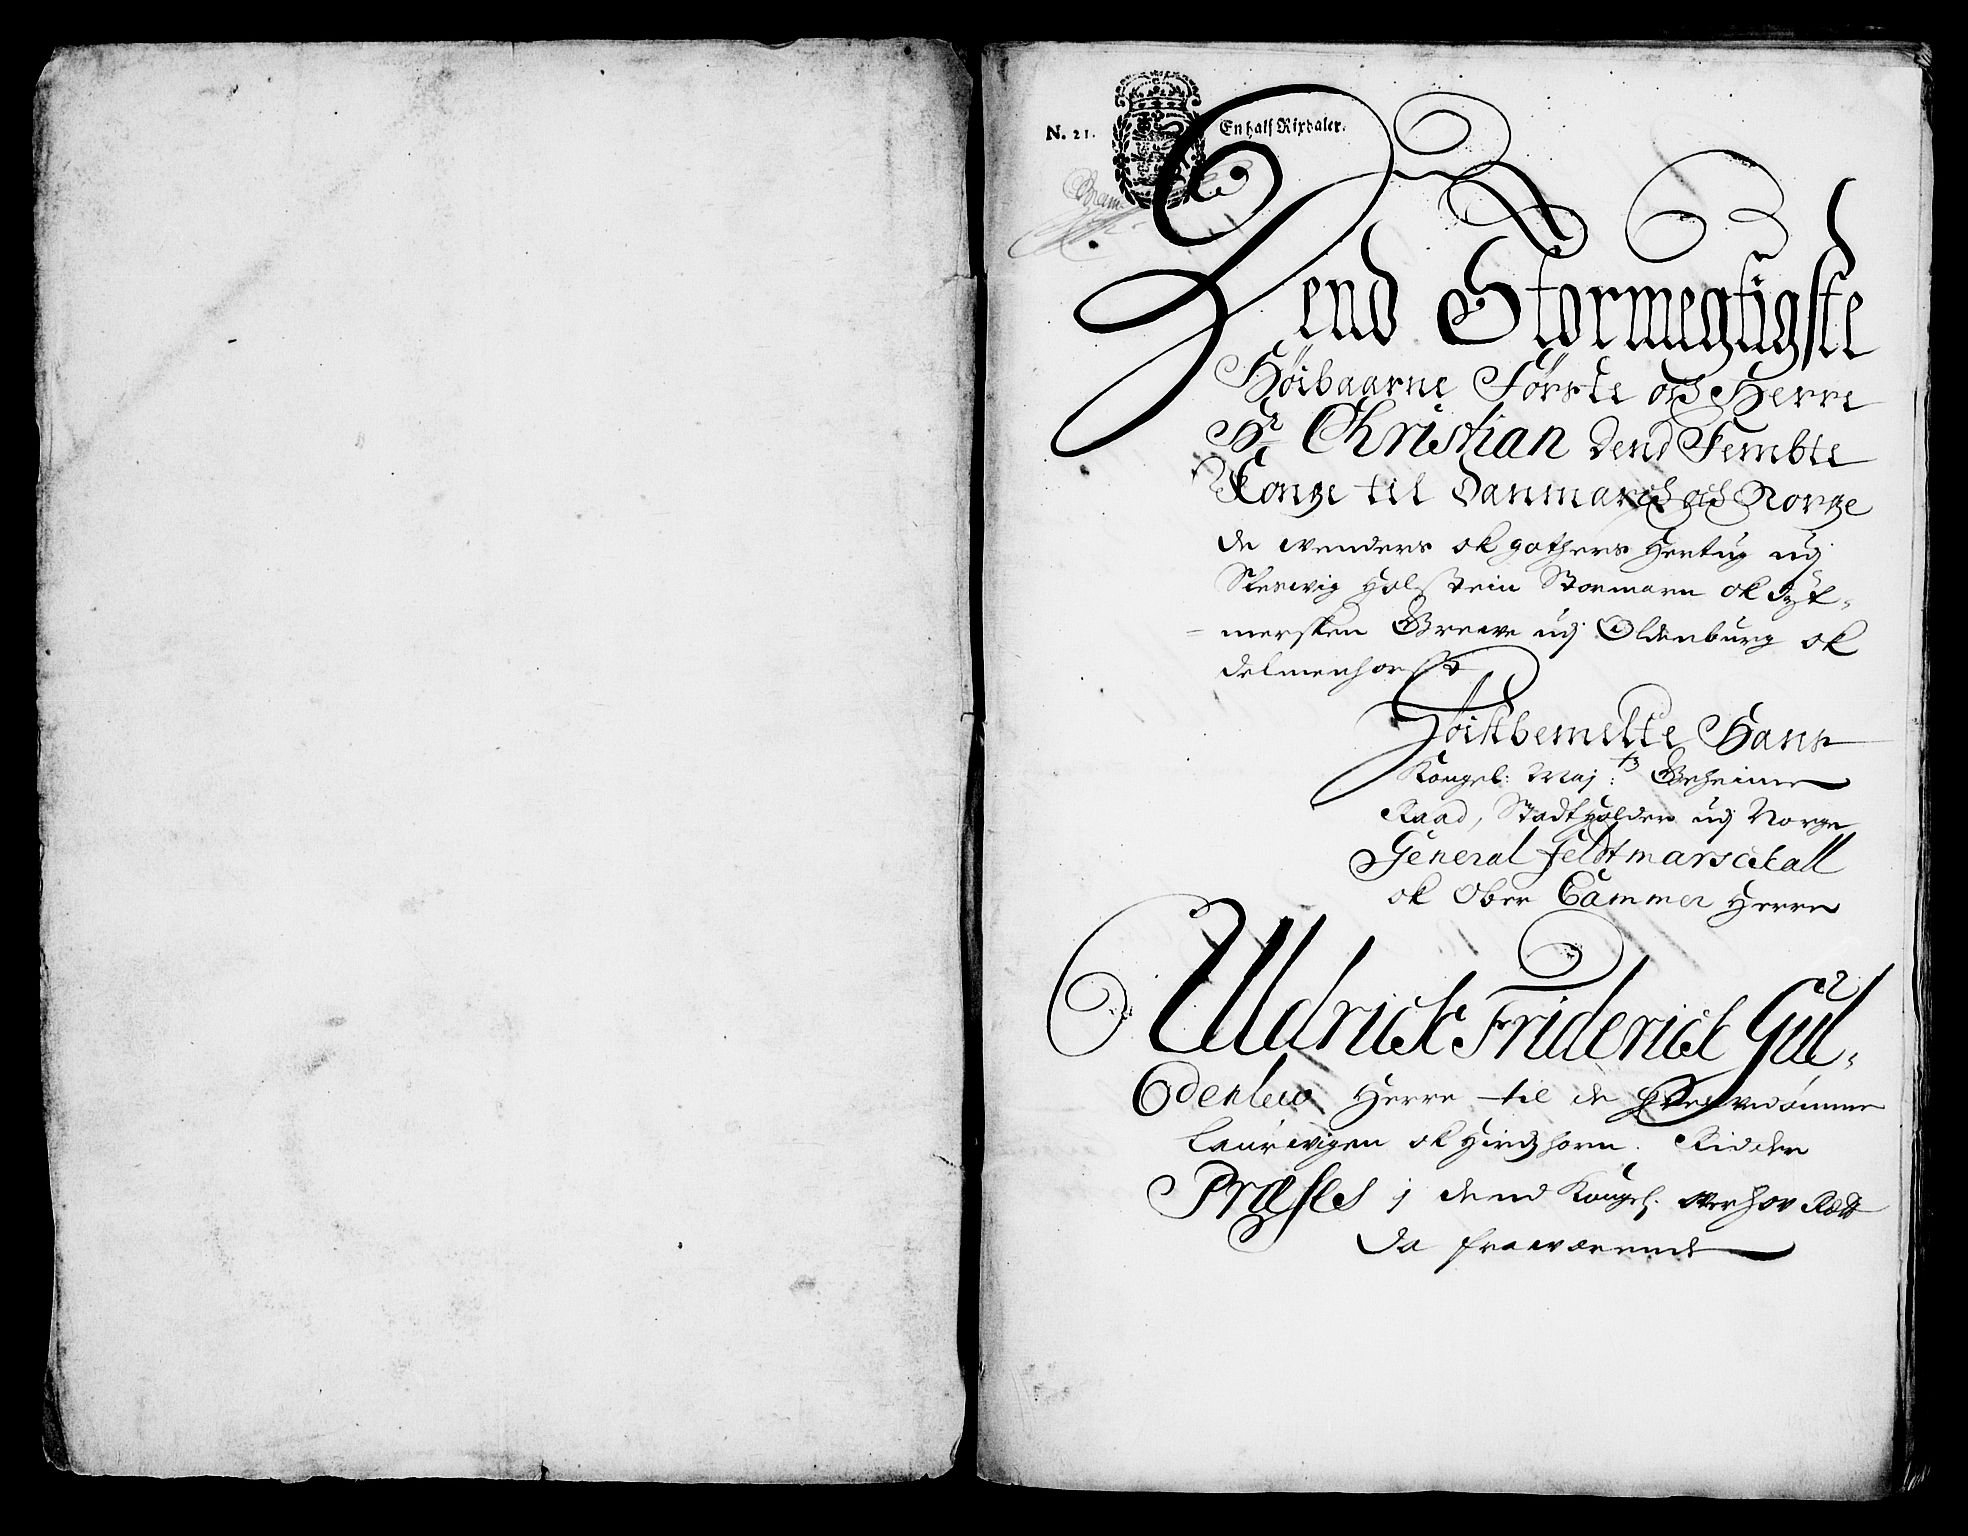 N. 21. En half Rixdaler.
Dend Stormegtigste
Høibaarne Første och Herre
Hr Christian dend Fembte
Konge til Danmarck och Norge
de Wenders ok gothers Hertug udj
Slesvig Holstein Stormarn ok Dyt-
mersken Grewe udj Oldenburg ok
Delmenhorst
Høistbemelte Hans
Kongel: Maj:ts Geheime
Raad, Stadtholder udj Norge
General feldtmarschall
ok Ober Cammer Herre
Uldrick Friderick Gül-
denlew Herre til de Grevedømme
Laurwigen ok Hirtzhorn. Ridder
Præses j dend Kongel: OverHov Rætt
da fraværende